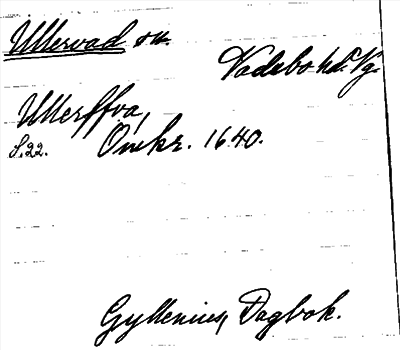 Ullervad sn.
Vadsbo hd. Vg.
Ullerffva,
S. 22. Omkr. 1640.
Gyllenius, Dagbok.